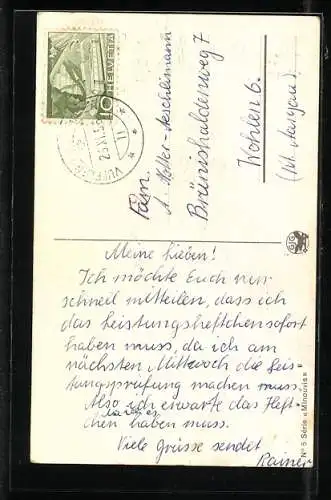 HELVETIA
10
26.XI.5
11
Fam.
A. Notter-Aeschlimann
Brünishaldenweg 7
Wohlen 6.
(Kt. Aargau)
Meine Lieben!
Ich möchte Euch nur
schnell mitteilen, dass ich
das Leistungsheftchen sofort
haben muss, da ich am
nächsten Mittwoch die Leis-
tungsprüfung machen muss.
Also, ich erwarte das Heft-
chen haben muss.
Viele Grüsse sendet
Rainer
N° 5 Série «Minouvis»